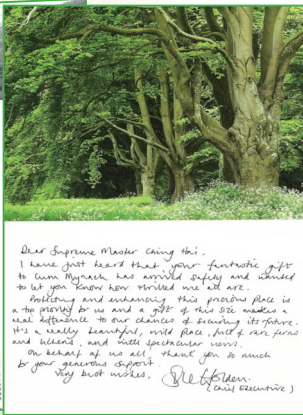 Dear Supreme Master Ching Hai.
I have just heard that your fantastic gift
to Cwm Mynach has arrived safely and wanted
to let you know how thrilled we all are.
Protecting and enhancing this precious place is
a top priority for us and a gift of this size makes a
real difference to our chances of securing its future.
It's a really beautiful, wild place, full of rare ferns
and lichens, and with spectacular views.
On behalf of us all, thank you so much
for your generous support.
Very best wishes,
Sue Holden.
(Chief Executive)